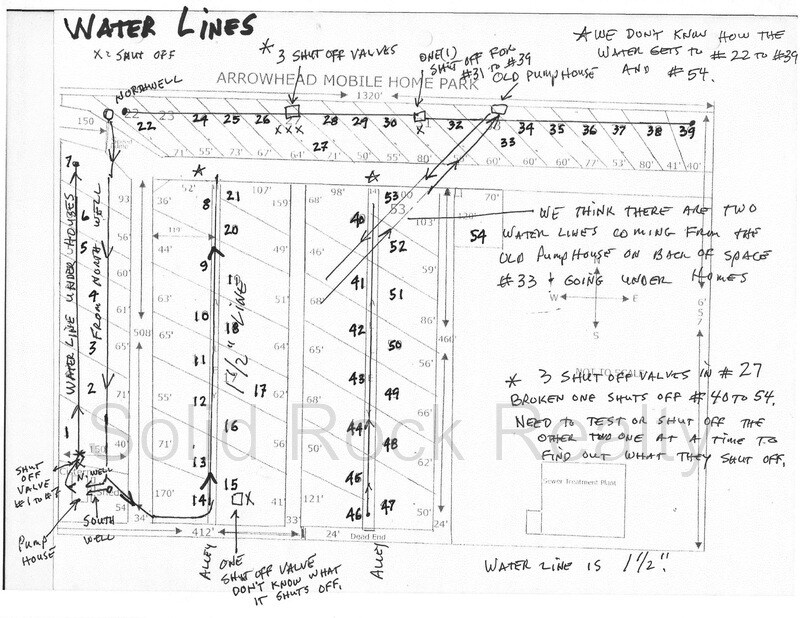 WATER LINES
X = SHUT OFF
* 3 SHUT OFF VALVES
ONE(1)
SHUT OFF FOR
#31 TO #39
OLD PUMPHOUSE
* WE DON'T KNOW HOW THE
WATER GETS TO #22 TO #39
AND #54.
ARROWHEAD MOBILE HOME PARK
1320'
NORTHWELL
150
22 23 24 25 26 27 28 29 30 31 32 33 34 35 36 37 38 39
X X X
X
27
33
71' 55' 73' 67' 64' 71' 55' 80' 60' 60' 71' 41' 40'
7 6 5 4 3 2 1
WATER LINE UNDER HOUSES
FROM NORTH WELL
93
508
52' 107' 68' 98' 14' 100 70'
36' 119 44' 165'
* 8 21
20
9
10 18
11
12 17
16
13
15
14
1 1/2" LINE
* 53
53
40 52
41 51
42 50
43 49
44 48
45
46 47
103'
59'
86'
460'
54
WE THINK THERE ARE TWO
WATER LINES COMING FROM THE
OLD PUMPHOUSE ON BACK OF SPACE
#33 + GOING UNDER HOMES
W E
S
657'
NOT TO SCALE
* 3 SHUT OFF VALVES IN #27
BROKEN ONE SHUTS OFF #40 TO 54.
NEED TO TEST OR SHUT OFF THE
OTHER TWO ONE AT A TIME TO
FIND OUT WHAT THEY SHUT OFF.
Solid Rock Realty
Sewer Treatment Plant
SHUT
OFF
VALVE
#1 TO #7
N. WELL
PUMP
HOUSE
SOUTH
WELL
150'
40'
54'
34'
170'
412'
121'
33'
24'
50'
24'
Dead End
X
ALLEY
ONE
SHUT OFF VALVE
DON'T KNOW WHAT
IT SHUTS OFF.
ALLEY
WATER LINE IS 1 1/2".